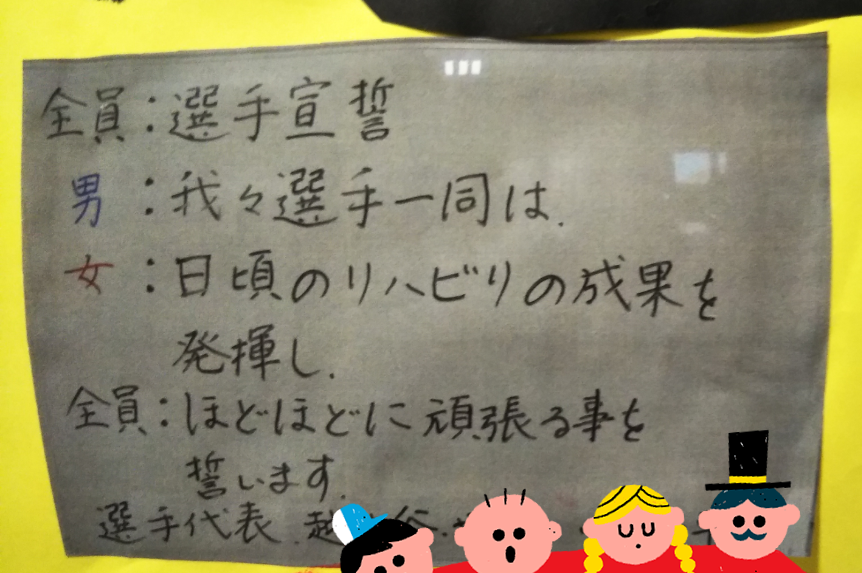 全員：選手宣誓
男：我々選手一同は、
女：日頃のリハビリの成果を
発揮し、
全員：ほどほどに頑張る事を
誓います。
選手代表